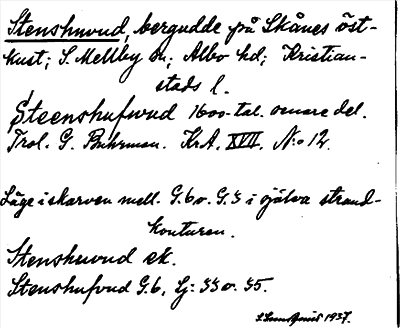 Stenshuvud, bergudde på Skånes öst-
kust; S. Mellby sn; Albo hd; Kristian-
stads l.
Steenshufwud 1600-tal. senare del.
Trol. G. Buhrman. Kr.A. XVII. N:o 12.
Läge i skarven mell. G.6 o. G.5 i själva strand-
konturen.
Stenshuvud ek.
Stenshufvud G.6, Lj: 33 o. 35.
1937.